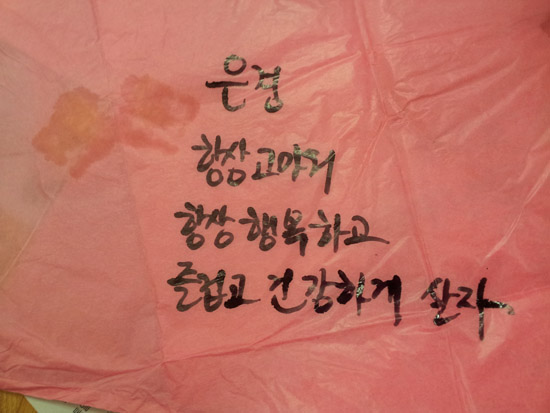 은경
항상고마워
항상행복하고
즐겁고 건강하게 살자